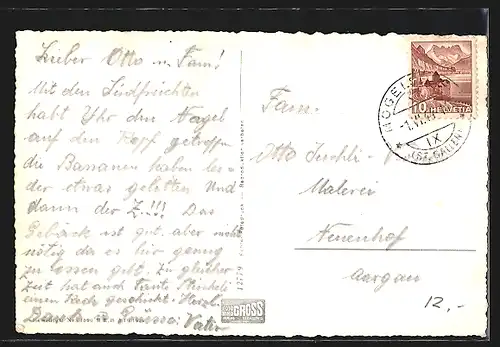 Lieber Otto u. Fam!
Mit den Südfrüchten
habt Ihr den Nagel
auf den Kopf getroffen
die Bananen haben lei-
der etwas gelitten Und
dann der Z!!! Das
Gebäck ist gut. aber nicht
nötig da es hier genug
zu essen gibt. Zu gleicher
Zeit hat auch Tante
einen Pack geschickt. Herzl.
Dank u. Grüsse: Vater
Fam.
Otto Jeschli-
Malerei
Neuenhof
Aargau
12,-
HELVETIA
10
(ST. GALLEN)
IX
GROSS